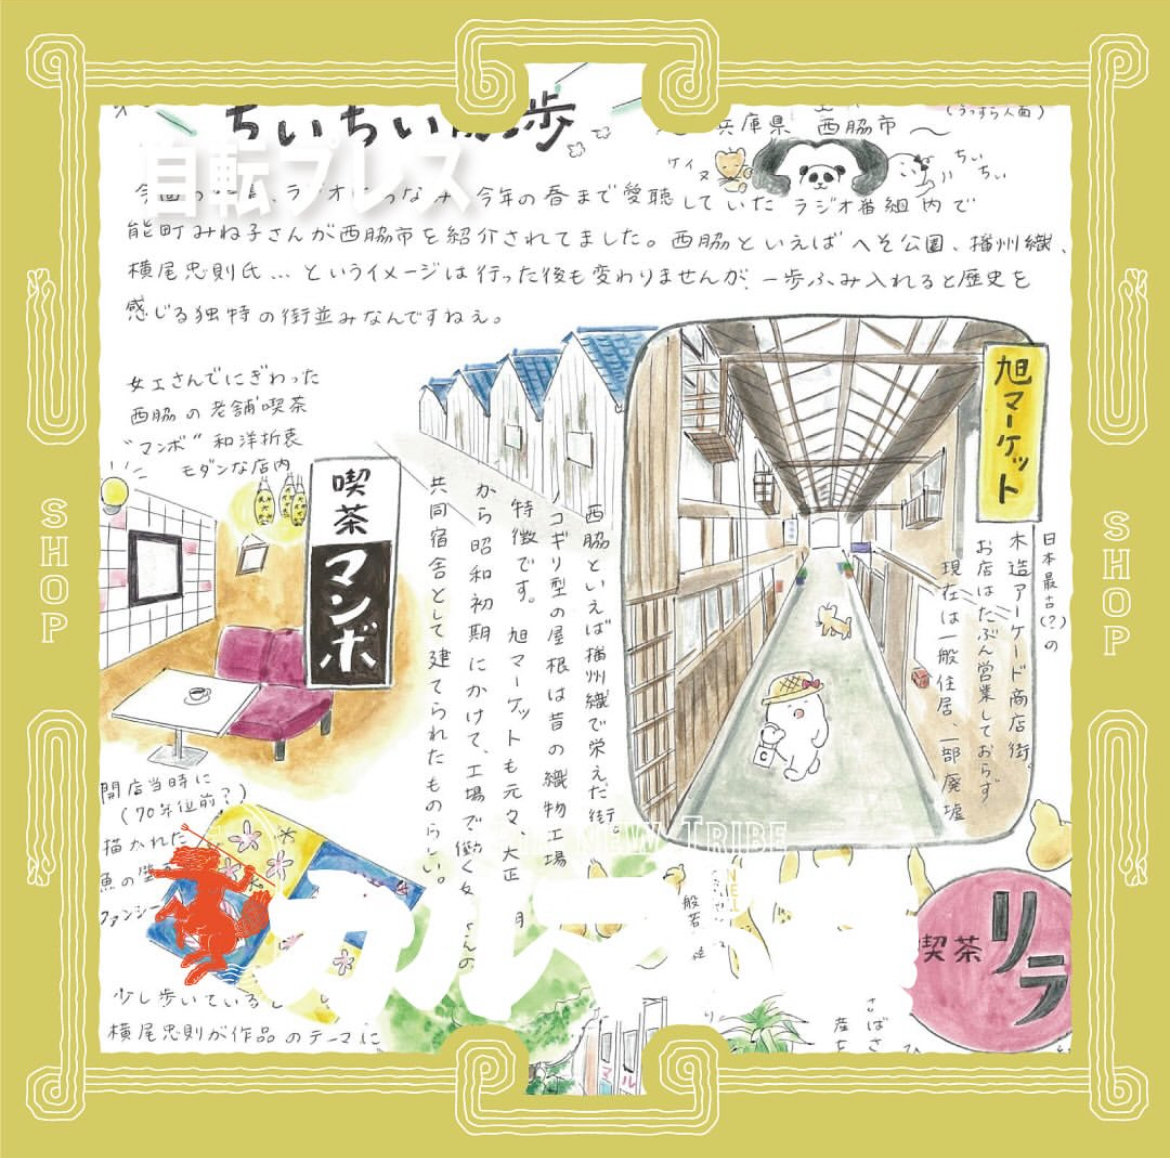 ちいちい散歩
自転プレス
兵庫県 西脇市
(うっすら人面)
ケイヌ
ちぃちぃ
ラジオ
今年の春まで愛聴していたラジオ番組内で
能町みね子さんが西脇市を紹介されてました。西脇といえばへそ公園、播州織、
横尾忠則氏…というイメージは行った後も変わりませんが、一歩ふみ入れると歴史を
感じる独特の街並みなんですねぇ。
女工さんでにぎわった
西脇の老舗喫茶
"マンボ"和洋折衷
モダンな店内
喫茶
マンボ
旭マーケット
日本最古(?)の
木造アーケード商店街、
お店はたぶん営業しておらず
現在は一般住居、一部廃墟
西脇といえば播州織で栄えた街。
ノコギリ型の屋根は昔の織物工場
特徴です。旭マーケットも元々、大正
から昭和初期にかけて、工場で働く女
さんの
共同宿舎として建てられたものらしい。
開店当時に
(70年位前?)
描かれた
魚の壁
ファンシー
少し歩いている
横尾忠則が作品のテーマに
喫茶
リラ
NEW TRIBE
カルー
SHOP
SHOP